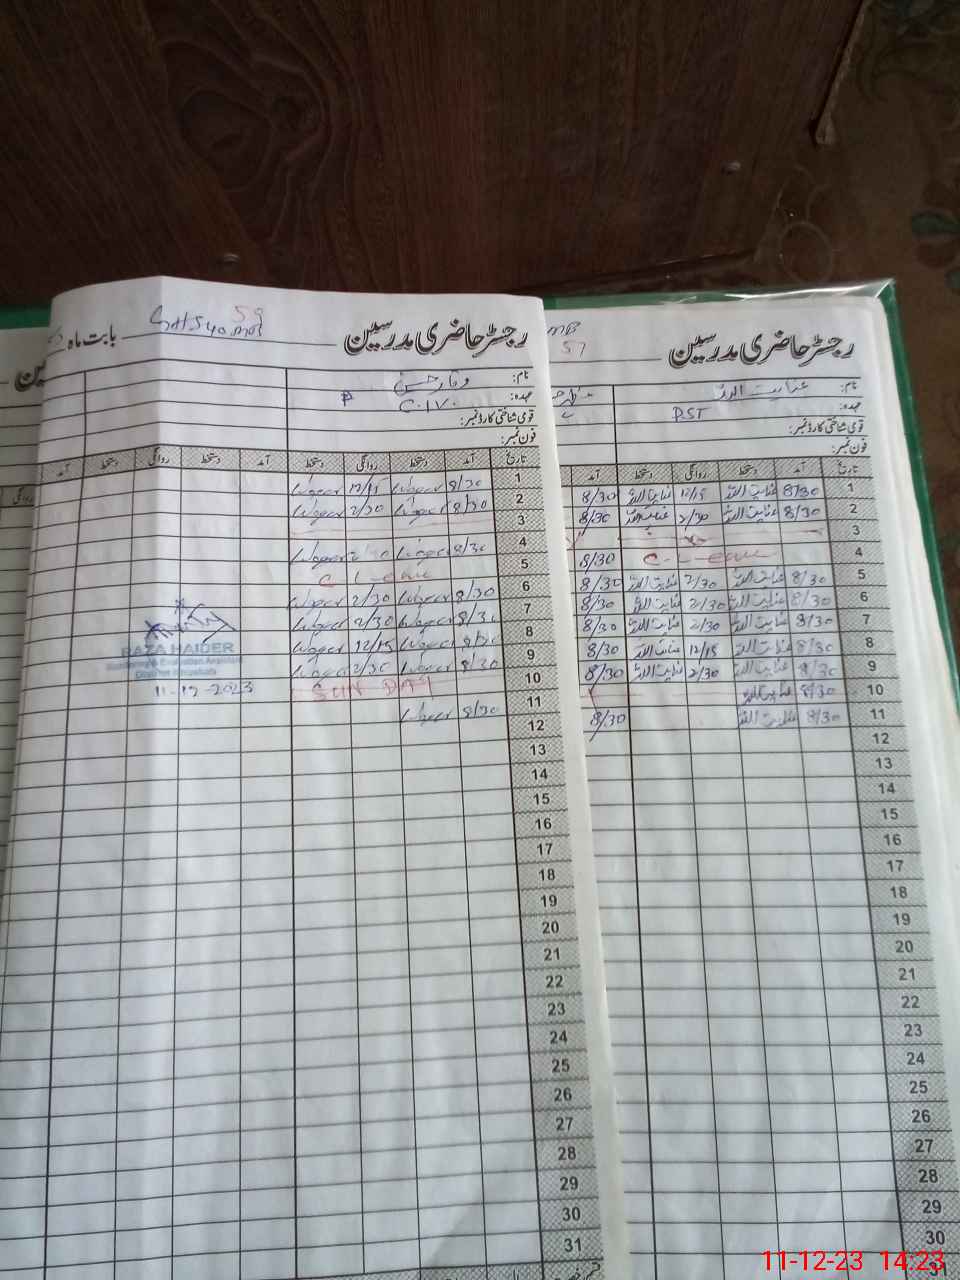 رجسٹر حاضری مدرسین
بابت ماہ
59
نام: وقار حسین
عہدہ:
قومی شناختی کارڈ نمبر:
فون نمبر:
تاریخ آمد دستخط روانگی دستخط آمد دستخط روانگی دستخط آمد
1 8/30 Waqar 12/15 Waqar
2 8/30 Waqar 2/30 Waqar
3
4 8/30 Waqar Waqar
5 C-L-
6 8/30 Waqar 2/30 Waqar
7 8/30 Waqar 2/30 Waqar
8 8/30 Waqar 12/15 Waqar
9 8/30 Waqar 2/30 Waqar
10 SUN DAY
11 8/30 Waqar
12
13
14
15
16
17
18
19
20
21
22
23
24
25
26
27
28
29
30
31
RAZA HAIDER
Monitoring & Evaluation Assistant
11-12-2023
رجسٹر حاضری مدرسین
57
نام: عنایت اللہ
عہدہ: PST
قومی شناختی کارڈ نمبر:
فون نمبر:
تاریخ آمد دستخط روانگی دستخط آمد
1 8/30 عنایت اللہ 12/15 عنایت اللہ 8/30
2 8/30 عنایت اللہ 2/30 عنایت اللہ 8/30
3
4 C-L- 8/30
5 8/30 عنایت اللہ 2/30 عنایت اللہ 8/30
6 8/30 عنایت اللہ 2/30 عنایت اللہ 8/30
7 8/30 عنایت اللہ 2/30 عنایت اللہ 8/30
8 8/30 عنایت اللہ 12/15 عنایت اللہ 8/30
9 8/30 عنایت اللہ 2/30 عنایت اللہ 8/30
10 8/30 عنایت اللہ
11 8/30 عنایت اللہ 8/30
12
13
14
15
16
17
18
19
20
21
22
23
24
25
26
27
28
29
30
31
11-12-23 14:23